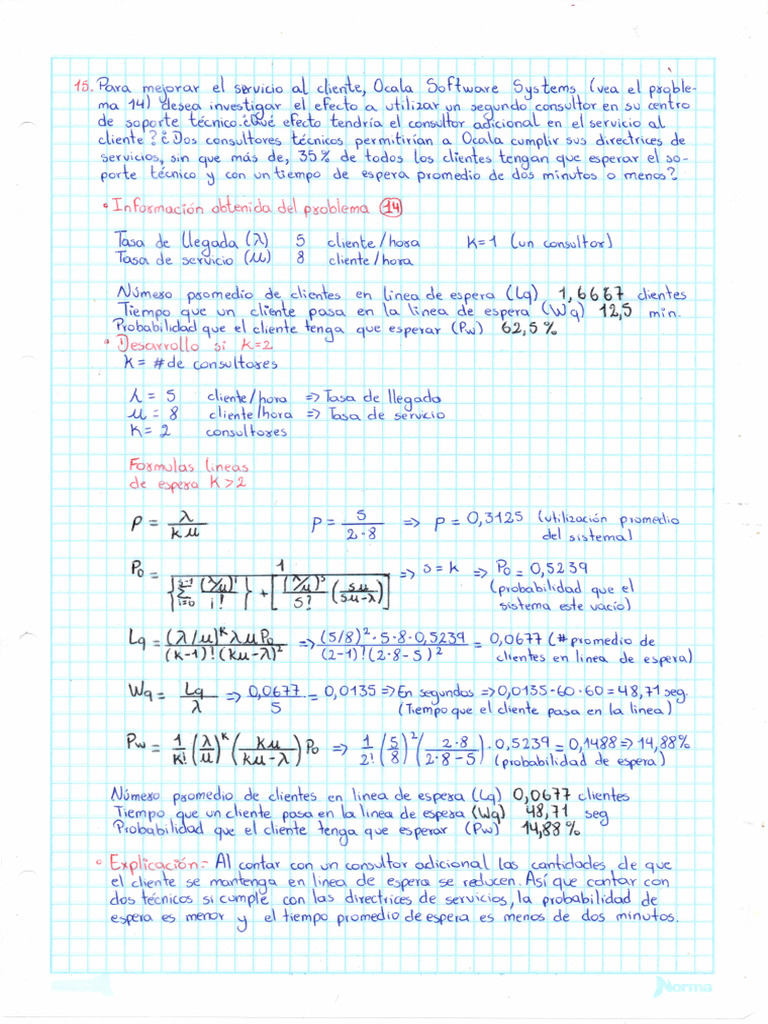 15. Para mejorar el servicio al cliente, Ocala Software Systems (vea el proble-
ma 14) desea investigar el efecto a utilizar un segundo consultor en su centro
de soporte técnico. ¿Qué efecto tendría el consultor adicional en el servicio al
cliente? ¿Dos consultores técnicos permitirían a Ocala cumplir sus directrices de
servicios, sin que más de, 35% de todos los clientes tengan que esperar el so-
porte técnico y con un tiempo de espera promedio de dos minutos o menos?
• Información obtenida del problema 14
Tasa de llegada (λ) 5 cliente/hora K=1 (un consultor)
Tasa de servicio (μ) 8 cliente/hora
Número promedio de clientes en linea de espera (Lq) 1,6667 clientes
Tiempo que un cliente pasa en la linea de espera (Wq) 12,5 min.
Probabilidad que el cliente tenga que esperar (Pw) 62,5%
• Desarrollo si K=2
K= # de consultores
λ = 5 cliente/hora => Tasa de llegada
μ = 8 cliente/hora => Tasa de servicio
K= 2 consultores
Formulas lineas
de espera K>2
P = λ/kμ P = 5/2·8 => P = 0,3125 (utilización promedio
del sistema)
P₀ = 1/{Σ_{i=0}^{s-1} (λ/μ)^i/i!} + [(λ/μ)^s/s! (sμ/sμ-λ)] => s = k => P₀ = 0,5239
(probabilidad que el
sistema este vacío)
Lq = (λ/μ)^k λμP₀/(k-1)!(kμ-λ)² => (5/8)²·5·8·0,5239/(2-1)!(2·8-5)² = 0,0677 (# promedio de
clientes en linea de espera)
Wq = Lq/λ => 0,0677/5 = 0,0135 => En segundos => 0,0135·60·60 = 48,71 seg.
(Tiempo que el cliente pasa en la linea)
Pw = 1/k! (λ/μ)^k (kμ/kμ-λ) P₀ => 1/2! (5/8)² (2·8/2·8-5)·0,5239 = 0,1488 => 14,88%
(probabilidad de espera)
Número promedio de clientes en linea de espera (Lq) 0,0677 clientes
Tiempo que un cliente pasa en la linea de espera (Wq) 48,71 seg
Probabilidad que el cliente tenga que esperar (Pw) 14,88%
• Explicación:- Al contar con un consultor adicional las cantidades de que
el cliente se mantenga en linea de espera se reducen. Así que contar con
dos técnicos si cumple con las directrices de servicios, la probabilidad de
espera es menor y el tiempo promedio de espera es menos de dos minutos.
Norma